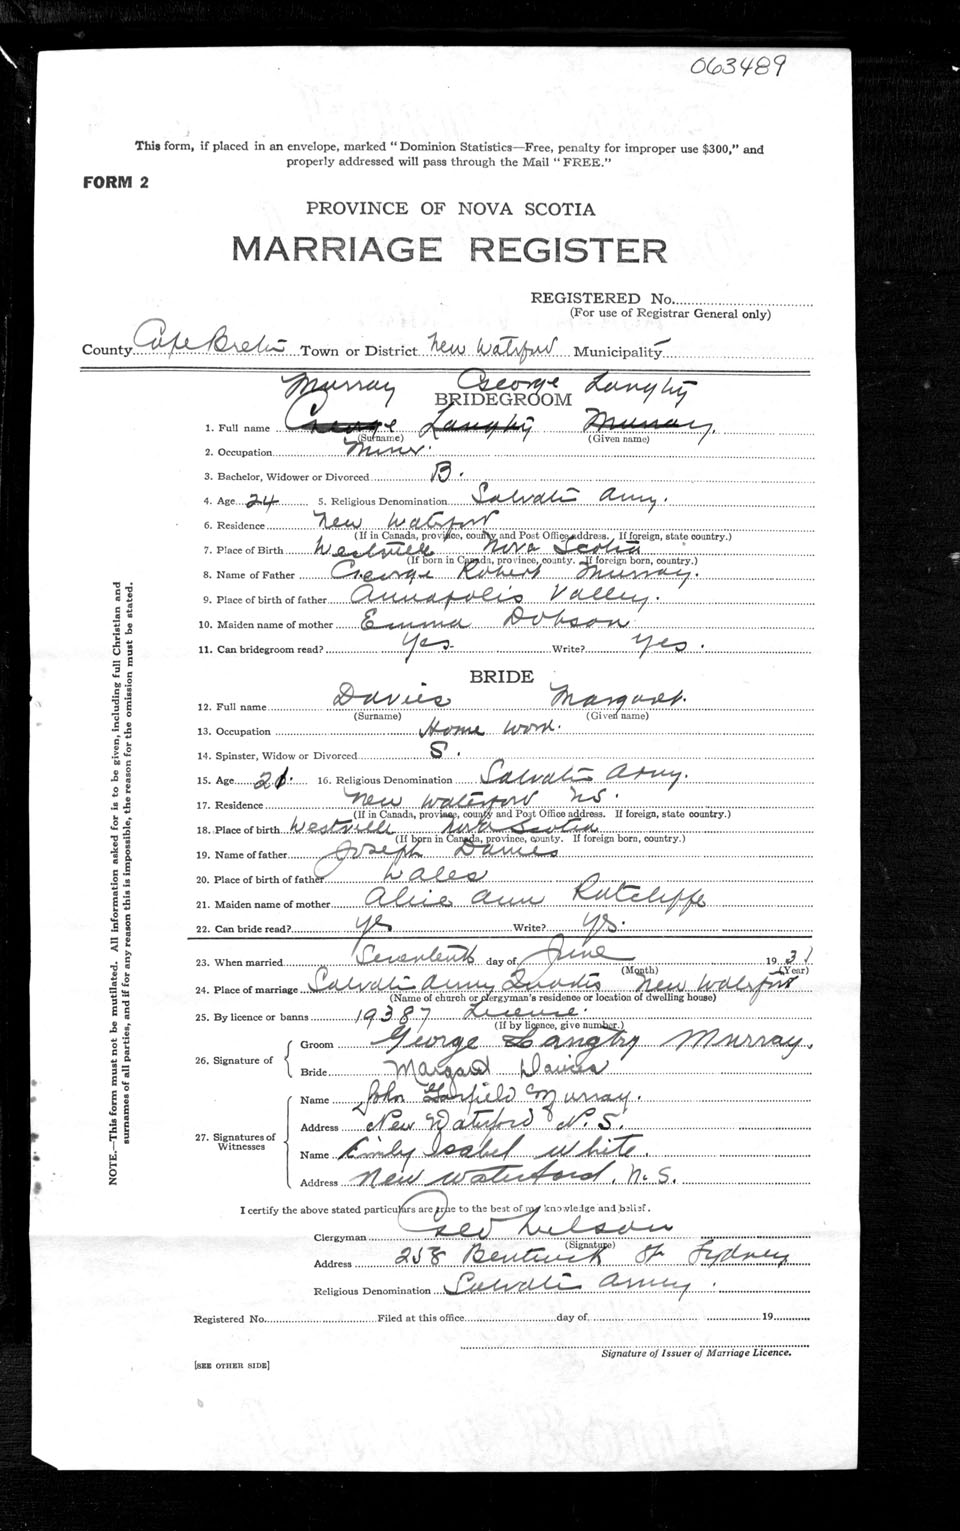 063489
This form, if placed in an envelope, marked "Dominion Statistics—Free, penalty for improper use $300," and
properly addressed will pass through the Mail "FREE."
FORM 2
PROVINCE OF NOVA SCOTIA
MARRIAGE REGISTER
REGISTERED No.
(For use of Registrar General only)
County Cape Breton Town or District New Waterford Municipality
Murray George Langtry
BRIDEGROOM
1. Full name George Langtry Murray.
(Surname) (Given name)
2. Occupation Miner.
3. Bachelor, Widower or Divorced B.
4. Age 24 5. Religious Denomination Salvation Army.
6. Residence New Waterford
(If in Canada, province, county and Post Office address. If foreign, state country.)
7. Place of Birth Westville Nova Scotia
(If born in Canada, province, county. If foreign born, country.)
8. Name of Father George Robert Murray.
9. Place of birth of father Annapolis Valley.
10. Maiden name of mother Emma Dobson
11. Can bridegroom read? Yes. Write? Yes.
BRIDE
12. Full name Davies Margaret.
(Surname) (Given name)
13. Occupation Home work.
14. Spinster, Widow or Divorced S.
15. Age 21. 16. Religious Denomination Salvation Army.
17. Residence New Waterford NS.
(If in Canada, province, county and Post Office address. If foreign, state country.)
18. Place of birth Westville Nova Scotia
(If born in Canada, province, county. If foreign born, country.)
19. Name of father Joseph Davies
20. Place of birth of father Wales
21. Maiden name of mother Alice Ann Ratcliffe
22. Can bride read? yes Write? yes.
23. When married Seventeenth day of June 1931
(Month) (Year)
24. Place of marriage Salvation Army New Waterford
(Name of church or clergyman's residence or location of dwelling house)
25. By licence or banns 19387 License.
(If by licence, give number.)
26. Signature of
Groom George Langtry Murray.
Bride Margaret Davies
27. Signatures of Witnesses
Name John Garfield Murray.
Address New Waterford N.S.
Name Emily Isabel White.
Address New Waterford, N.S.
I certify the above stated particulars are true to the best of my knowledge and belief.
Clergyman Geo Wilson
(Signature)
Address 258 Bentinck St Sydney
Religious Denomination Salvation Army.
Registered No. Filed at this office day of 19
Signature of Issuer of Marriage Licence.
[SEE OTHER SIDE]
NOTE.—This form must not be mutilated. All information asked for is to be given, including full Christian and
surnames of all parties, and if for any reason this is impossible, the reason for the omission must be stated.